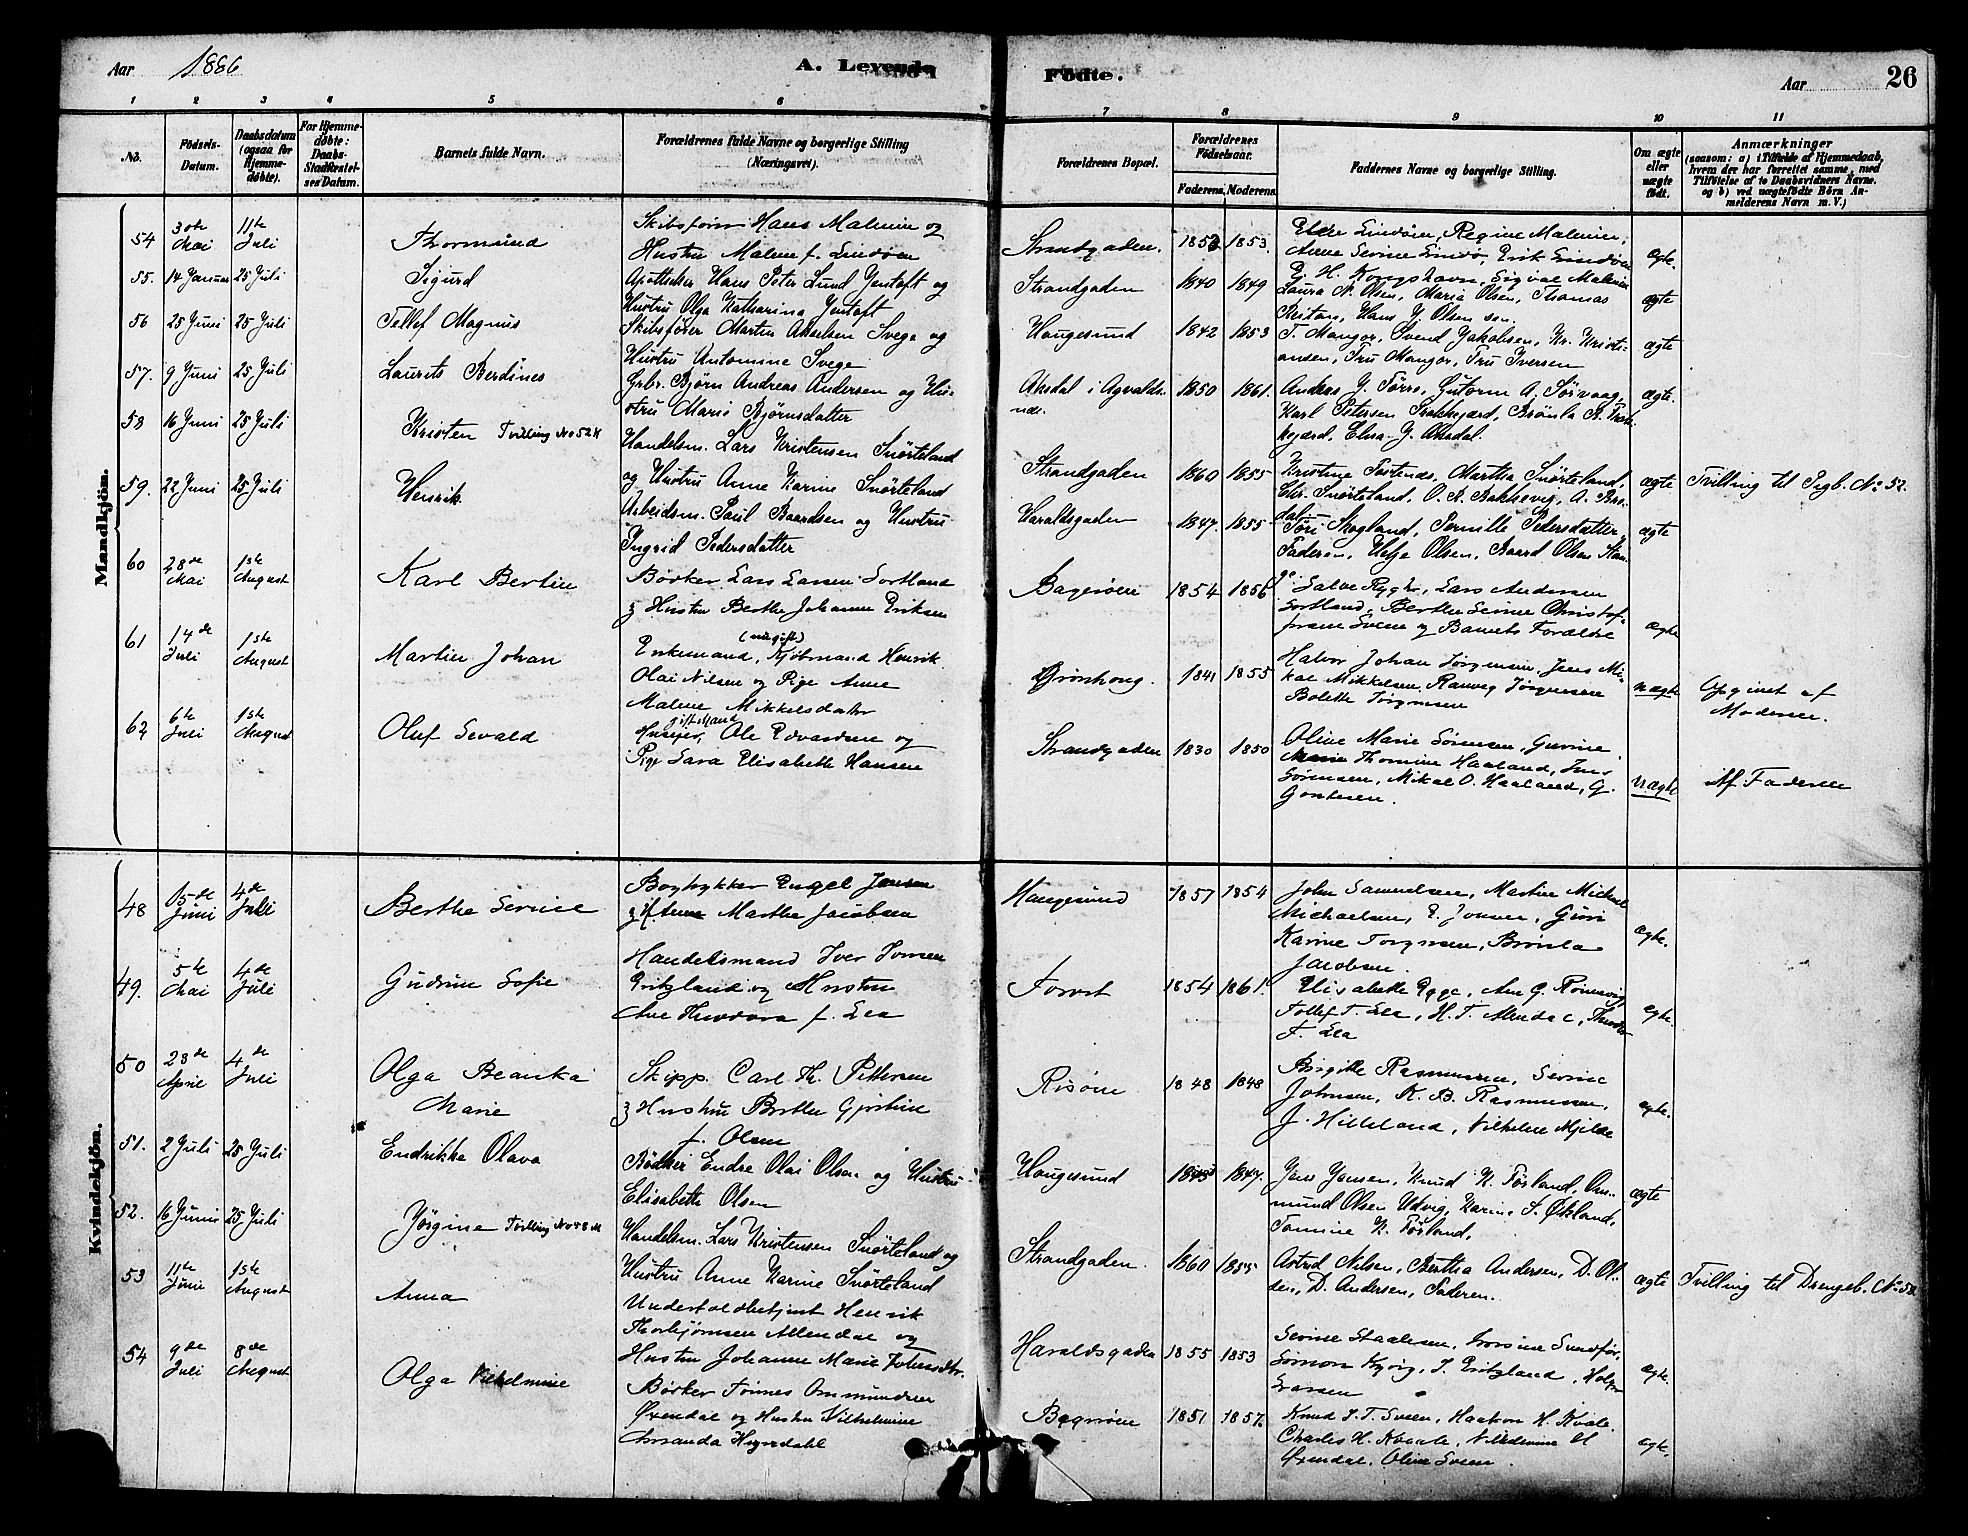 Aar 1886 A. Levende Fødte. Aar 26
1 2 3 4 5 6 7 8 9 10 11
No. Fødsels-Datum. Daabsdatum (ogsaa for Hjemme-døbte). For Hjemme-døbte: Daabs-Stadfæstel-ses Datum. Barnets fulde Navn. Forældrenes fulde Navne og borgerlige Stilling (Næringsvei). Forældrenes Bopæl. Forældrenes Fødselsaar. Faderens. Moderens. Faddernes Navne og borgerlige Stilling. Om ægte eller uægte født. Anmærkninger (saasom: a) i Tilfælde af Hjemmedaab, hvem der har forrettet samme, med Tilføielse af to Daabsvidners Navne, og b) ved uægtefødte Børn An-melderens Navn m. V.)
Mandkjøn.
54 3die Mai 11te Juli Thormund Skibsfører Hans Malmin og
Hustru Malene f. Lindøen Strandgaden. 1853 1853. Lindøen, Regine Malmin,
Anne Serine Lindø, Erik Lindøen ægte.
55. 14 Januar 25 Juli Sigurd Apotheker Hans Peter Lund Gentoft og
Hustru Olga Katharina Gentoft Strandgaden 1840 1849 P. H. Kongshavn, Sigval Malmin
Laura N. Olsen, Maria Olsen, Thomas
Hans J. Olsen sen. ægte
56 25 Juni 25 Juli Tellef Magnus Skibsfører Martin Akselsen Svege og
Hustru Antomine Svege Haugesund 1842 1853 T. Mangor, Svend Jakobsen, Kr. Kristi-
ansen, Fru Mangor, Fru Iversen ægte
57. 9 Juni 25 Juli Laurits Berdines Grbr. Bjørn Andreas Andersen og Hu-
stru Maris Bjørnsdatter Aksdal i Agvalds-
næs. 1850 1861. Andreas J. Førre, Gutorm A. Sørvaag,
Karl Petersen Stakkegjærd, Brønla
Elna J. Aksdal. ægte.
58 16 Juni 25 Juli Kristen Tvilling No 52 K Handelsm. Lars Kristensen Snørteland
og Hustru Anne Karine Snørteland Strandgaden 1860 1855 Kristine Martha Snørteland,
Chr. Snørteland, O. R. Bakkevig, A. Bra-
dal ægte Tvilling til Pigb. No 52.
59. 22 Juni 25 Juli Henrik Arbeidsm. Paul Baardsen og Hustru
Ingrid Pedersdatter Haraldsgaden 1847 1855 Tøri Skogland, Pernille Pedersdatter,
Faderen, Helje Olsen, Baard Olsen Stan-
ge. ægte
60 28de Mai 1ste August Karl Bertin Bødker Lars Larsen Sortland
& Hustru Berthe Johanne Eriksen Bagerøen 1854 1856 Salve Rygh, Lars Andersen
Sortland, Berthe Serine Christof-
Sveen og Barnets Forældre ægte
61 14de Juli 1ste August Martin Johan (ugift)
Enkemand, Kjøbmand Henrik
Olai Nilsen og Pige Anne
Malene Mikkelsdatter Grønhoug. 1841 1855 Halvor Johan Jørgensen, Jens Mi-
kal Mikkelsen, Ranveg Jørgensen
Bolette Jørgensen uægte Opgivet af
Moderen.
62 6te Juli 1ste August Oluf Sevald gift Mand
Huseier, Ole Edvardsen og
Pige Sara Elisabeth Hansen Strandgaden 1830 1850 Oline Marie Sørensen, Gurine
Thomine Haaland, Jens
Sørensen, Mikal O. Haaland, G.
Gontesen. uægte Af Faderen
Kvindekjøn.
48 15de Juni 4de Juli Berthe Serine Bogtrykker Engel Jensen
& H. Anne Marthe Jacobsen Haugesund 1857 1854 John Samuelsen, Martin Michael
Michaelsen, E. Jonsen, Guri
Karine Torgersen, Brønla
Jacobsen. ægte.
49. 5te Mai 4de Juli Gudrun Sofie Handelsmand Iver Iversen
Eritzland og Hustru
Ane Theodora f. Lea Torvet 1854 1861. Elisabeth Egge, Ane G. Rønnevig
Tollef T. Lea, H. T. Alendal,
T. Lea ægte.
50 28de April 4de Juli Olga Bianka
Marie Skipp. Carl Th. Pettersen
& Hustru Berthe Gjertine
f. Olsen Risøen 1848 1848 Birgitte Rasmussen, Serine
Johnsen, K. B. Rasmussen,
J. Hilleland, Vilhelm Mjelde ægte.
51. 2 Juli 25 Juli Endrikke Olava Bødker Endre Olai Olsen og Hustru
Elisabeth Olsen Haugesund 1847. Jens Jensen, Knud K. Førland, Om-
mund Olsen Udvig, Karine S. Økland,
Tomine K. Førland. ægte
52. 16 Juni 25 Juli Jørgine Tvilling No 58 M Handelsm. Lars Kristensen Snørteland og
Hustru Anne Karine Snørteland Strandgaden. 1860 1855 Astrid Nelsen, Bertha Andersen, D. Ol-
sen, D. Andersen, Faderen. ægte Tvilling til Drengeb. No 58
53 11te Juni 1ste August Anna Undertoldbetjent Henrik
Thorbjørnsen Allendal og
Hustru Johanne Marie Haraldsgaden 1855 1853 Serine Staalesen, Sundfør,
Simon Kyvig, I. Eritzland, Holger
Larsen ægte.
54 9de Juli 8de August Olga Vilhelmine Bødker Tønnes Ommundsen
Øxendal og Hustru Vilhelmine
Amanda Hegredahl Bagerøen 1851 1857. Knud J. T. Sveen, Haakon H. Kvale
Charles H. Kvale, Vilhelmine H
Øxendal, Oline Sveen. ægte.